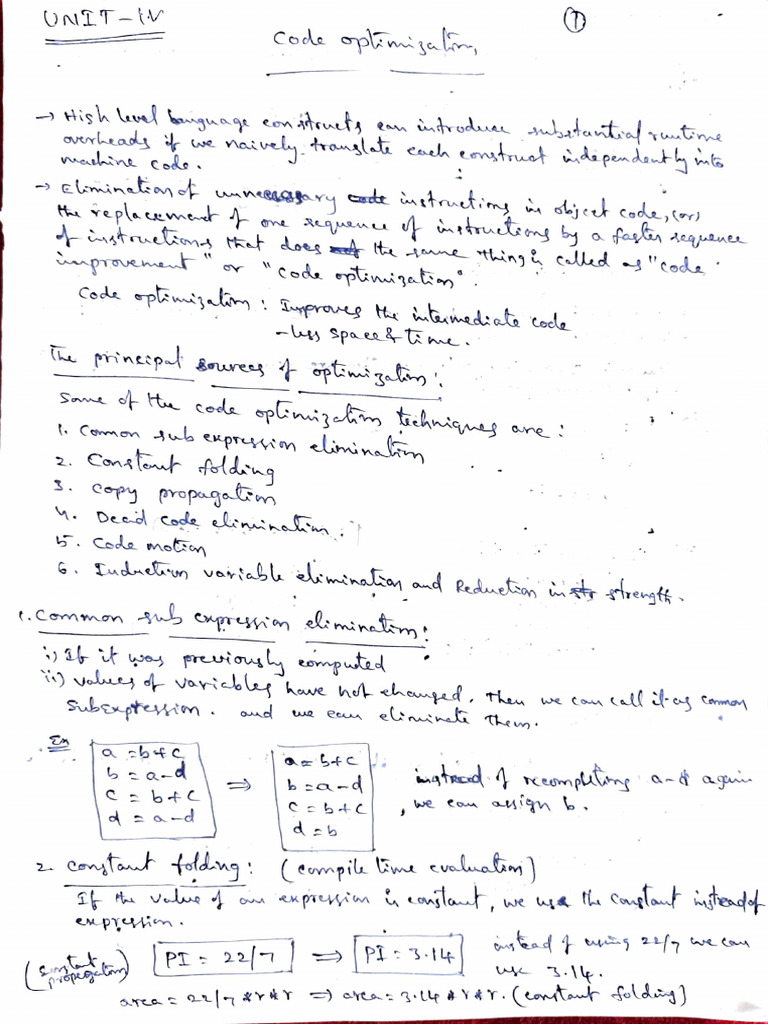 UNIT-IV
①
Code optimization
→ High level language constructs can introduce substantial runtime
overheads if we naively translate each construct independently into
machine code.
→ Elimination of unnecessary instructions in object code, (or)
the replacement of one sequence of instructions by a faster sequence
of instructions that does the same thing is called as "code
improvement" or "code optimization".
Code optimization : Improves the intermediate code
- less space & time.
The principal sources of optimization:
Some of the code optimization techniques are :
1. Common sub expression elimination
2. Constant folding
3. Copy propagation
4. Dead code elimination.
5. Code motion
6. Induction variable elimination and Reduction in strength.
1. Common sub expression elimination:
i) If it was previously computed
ii) values of variables have not changed. Then we can call it as common
subexpression. and we can eliminate them.
Ex
a = b+c
b = a-d
c = b+c
d = a-d
⇒
a = b+c
b = a-d
c = b+c
d = b
instead of recomputing a-d again
, we can assign b.
2. constant folding : (compile time evaluation)
If the value of an expression is constant, we use the constant instead of
expression.
(constant propagation)
PI = 22/7 ⇒ PI = 3.14
instead of using 22/7 we can
use 3.14.
area = 22/7 *r*r ⇒ area = 3.14 *r*r. (constant folding)